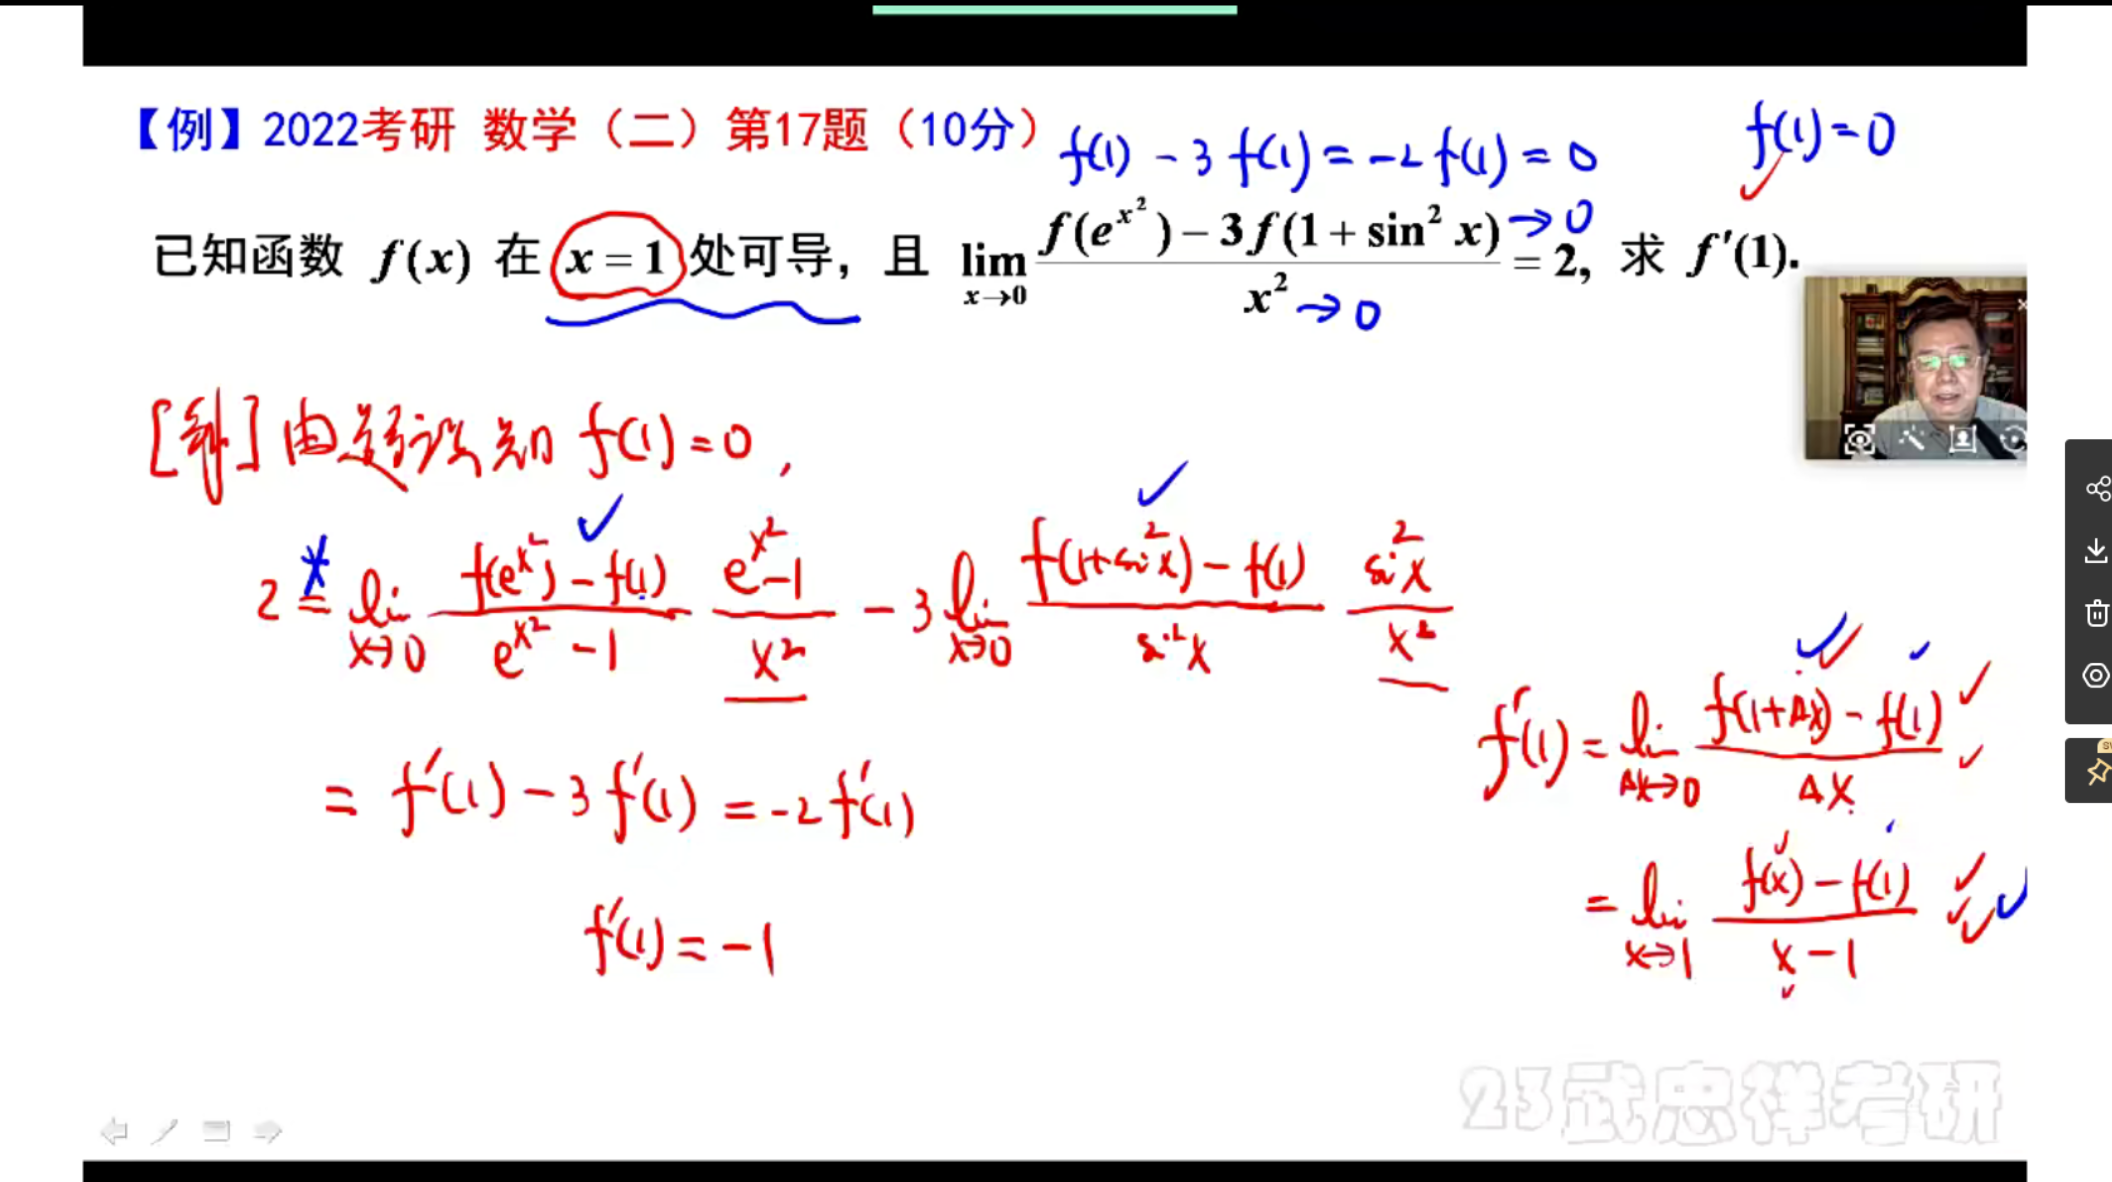 【例】2022考研 数学（二）第17题（10分）
f(1) - 3f(1) = -2f(1) = 0
f(1) = 0
已知函数 f(x) 在 x = 1 处可导，且 lim x→0 f(e^{x^2}) - 3f(1 + sin^2 x) → 0 / x^2 → 0 = 2, 求 f'(1).
[解] 由题设知 f(1) = 0,
2 = lim x→0 f(e^{x^2}) - f(1) / e^{x^2} - 1 · e^{x^2} - 1 / x^2 - 3 lim x→0 f(1+sin^2 x) - f(1) / sin^2 x · sin^2 x / x^2
= f'(1) - 3f'(1) = -2f'(1)
f'(1) = -1
f'(1) = lim Δx→0 f(1+Δx) - f(1) / Δx
= lim x→1 f(x) - f(1) / x - 1
23武忠祥考研